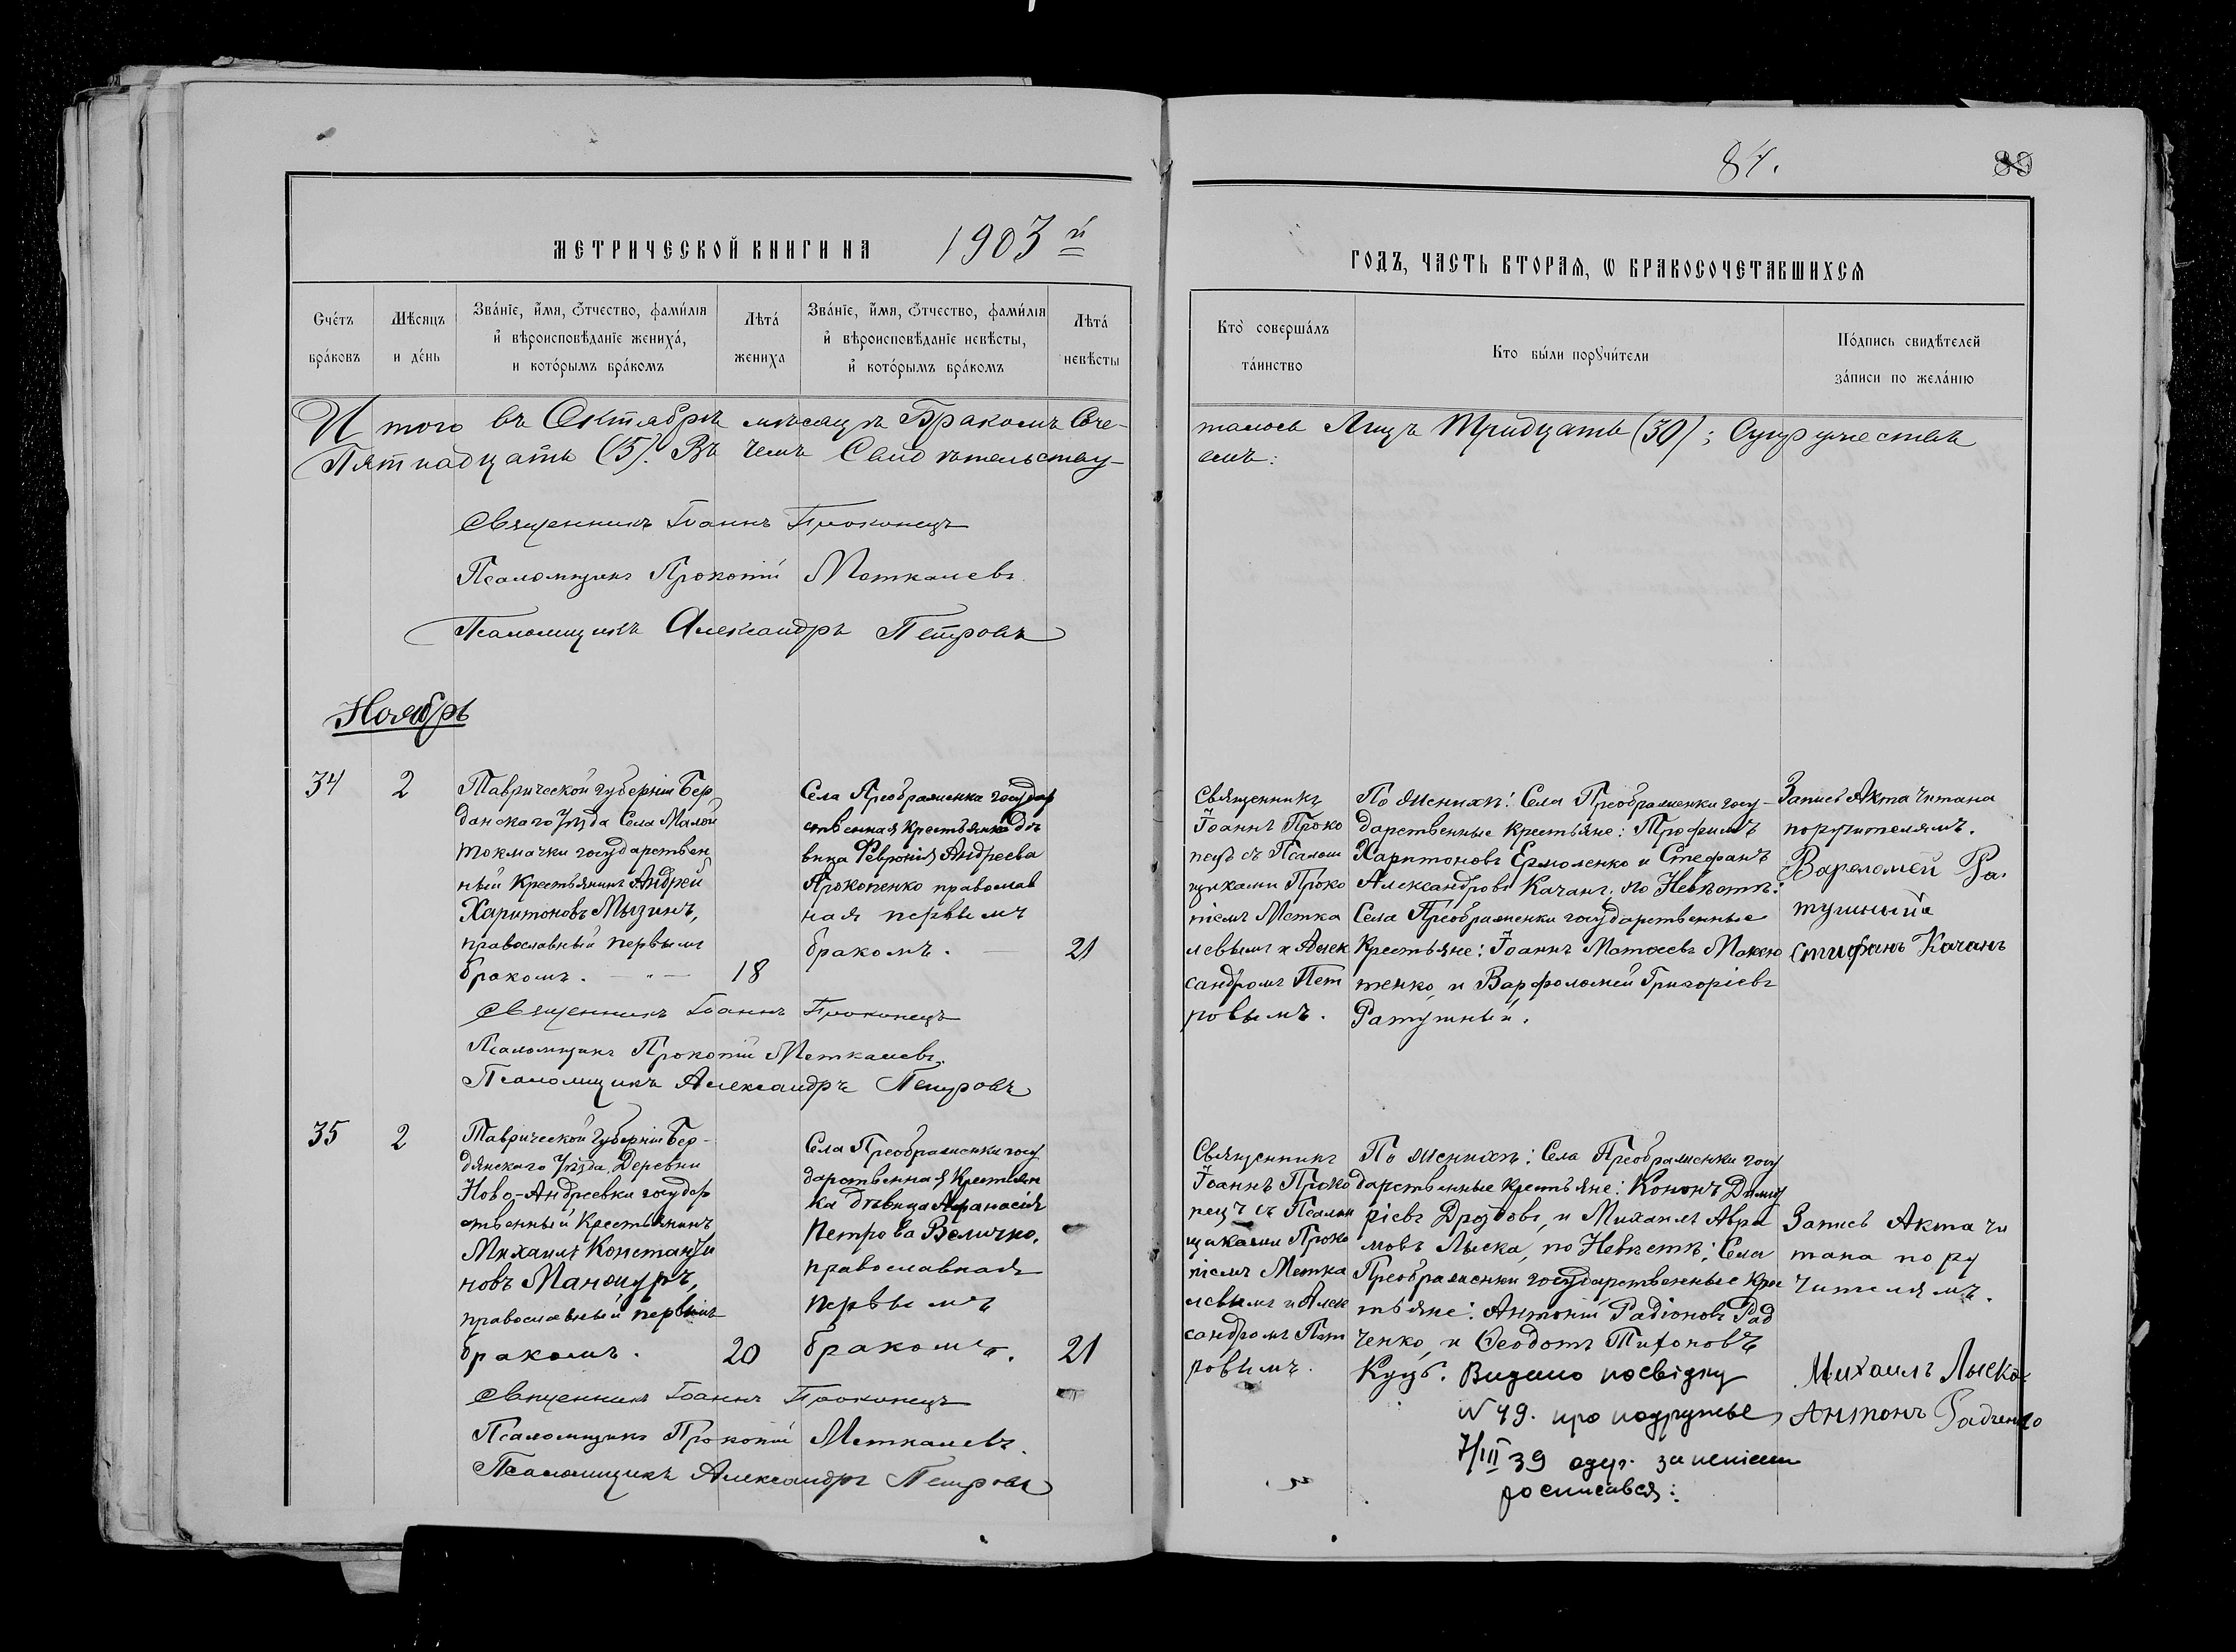 84.
88
МЕТРИЧЕСКОЙ КНИГИ НА 1903 й
ГОДЪ, ЧАСТЬ ВТОРАЯ, Ѡ БРАКОСОЧЕТАВШИХСЯ
Сче́тъ бра́ковъ
Мѣсяцъ и де́нь
Зва́нїе, и҆́мя, ѻ҆́тчество, фами́лїя и҆ вѣроисповѣ́данїе жениха́, и кото́рымъ бра́комъ
Лѣта́ жениха
Зва́нїе, и҆́мя, ѻ҆́тчество, фами́лїя и҆ вѣроисповѣ́данїе невѣ́сты, и҆ кото́рымъ бра́комъ
Лѣта́ невѣ́сты
Кто̀ соверша́лъ та́инство
Кто бы́ли порꙋчи́тели
По́дпись свидѣ́телей за́писи по жела́нїю
И того въ Октябрѣ мѣсяцѣ Бракомъ Соче-
талось Лицъ Тридцать (30); Супружествъ
Пятнадцать (15). Въ чемъ Свидѣтельству-
емъ:
Священникъ Іоаннъ Прокопецъ
Псаломщикъ Прокопій Меткалевъ
Псаломщикъ Александръ Петровъ
Ноябрь
34
2
Таврической губерніи Бер
данскаго Уѣзда Села Малой
токмачки государствен
ный Крестьянинъ Андрей
Харитоновъ Мызинъ,
православный первымъ
бракомъ. — „ —
18
Села Преображенка государ
ственная Крестьянка дѣ
вица Февронія Андреева
Прокопенко православ
ная первымъ
бракомъ. —
21
Священникъ
Іоаннъ Проко
пецъ съ Псалом
щиками Проко
піемъ Метка
левымъ и Алек
сандромъ Пет
ровымъ.
По Женихѣ: Села Преображенки госу-
дарственные Крестьяне: Трофимъ
Харитоновъ Ермоленко и Стефанъ
Александровъ Качанъ, по Невѣстѣ:
Села Преображенки государственные
Крестьяне: Іоаннъ Матѳеевъ Макею
тенко, и Варфоломей Григоріевъ
Ратушный.
Запись Акта Читана
поручителямъ.
Варфоломей Ра
тушный
Стифанъ Качанъ
Священникъ Іоаннъ Прокопецъ
Псаломщикъ Прокопій Меткалевъ.
Псаломщикъ Александръ Петровъ
35
2
Таврической Губерніи Бер-
дянскаго Уѣзда, Деревни
Ново-Андреевки государ
ственный Крестьянинъ
Михаилъ Константи
новъ Манжуръ,
православный первымъ
бракомъ.
20
Села Преображенки госу
дарственная Крестьян
ка дѣвица Афанасія
Петрова Величко,
православная
первымъ
бракомъ.
21
Священникъ
Іоаннъ Проко
пецъ съ Псалом
щиками Проко
піемъ Метка
левымъ и Алек
сандромъ Пет
ровымъ.
По Женихѣ: Села Преображенки госу
дарственные крестьяне: Кононъ Димит
ріевъ Дроздовъ, и Михаилъ Авра
мовъ Лыска, по Невѣстѣ: Села
Преображенки государственные Крес
тьяне: Антоній Радіоновъ Рад
ченко, и Ѳеодотъ Тихоновъ
Куцъ. Видано посвідку
N 49. про подружье
7/III 39 одер.
росписався:
Запись Акта чи
тана пору
чителямъ.
Михаилъ Лыска
Антонъ Радченко
Священникъ Іоаннъ Прокопецъ
Псаломщикъ Прокопій Меткалевъ.
Псаломщикъ Александръ Петровъ